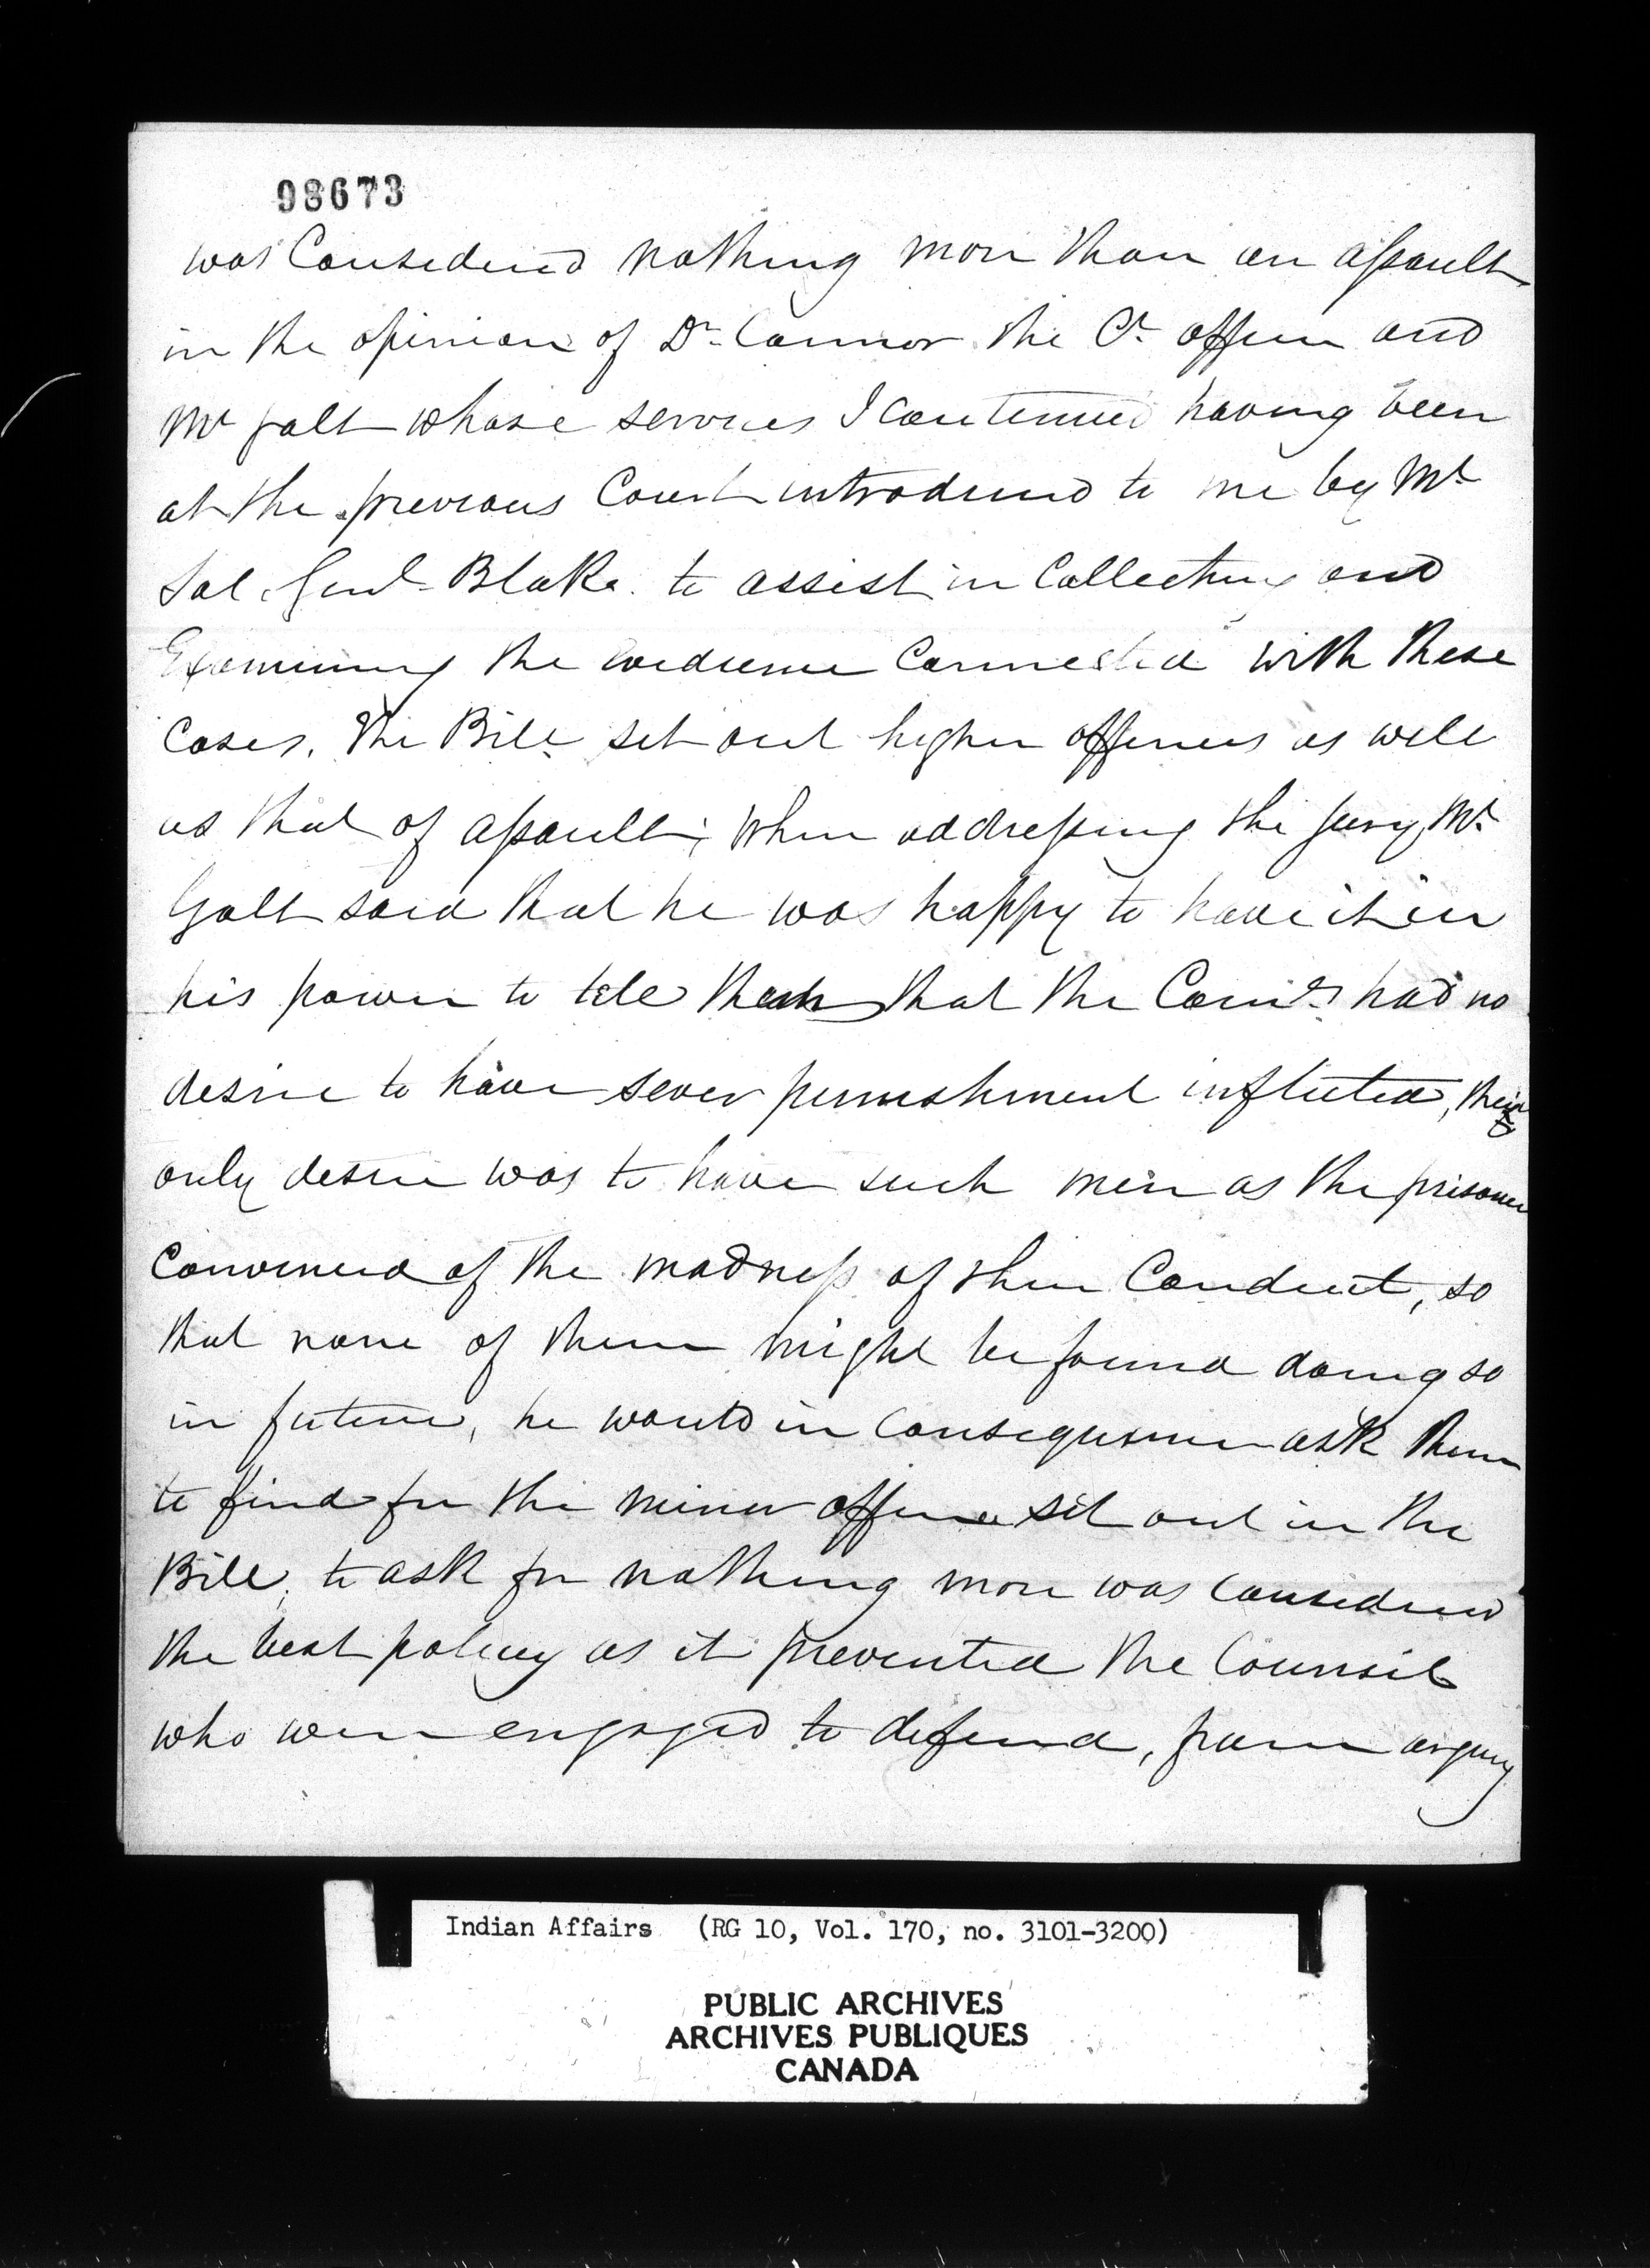 98673
was Considered nothing more than an assault
in the opinion of Dr. Connor the Cr. officer and
Mr Galt whose services I continued having been
at the previous Court introduced to me by Mr
Sol. Genl. Blake. to assist in Collecting and
Examining the evidence Connected with these
Cases. The Bill set out higher offences as well
as that of assault; When addressing the Jury, Mr.
Galt said that he was happy to have it in
his power to tell them that the Comrs. had no
desire to have sever punishment inflicted, their
only desire was to have such men as the prisoner
Convinced of the madness of their Conduct, so
that none of them might be found doing so
in future, he would in consequence ask them
to find for the minor offence set out in the
Bill; to ask for nothing more was considered
the best policy as it prevented the Counsil
who were engaged to defend, from arguing
Indian Affairs (RG 10, Vol. 170, no. 3101-3200)
PUBLIC ARCHIVES
ARCHIVES PUBLIQUES
CANADA